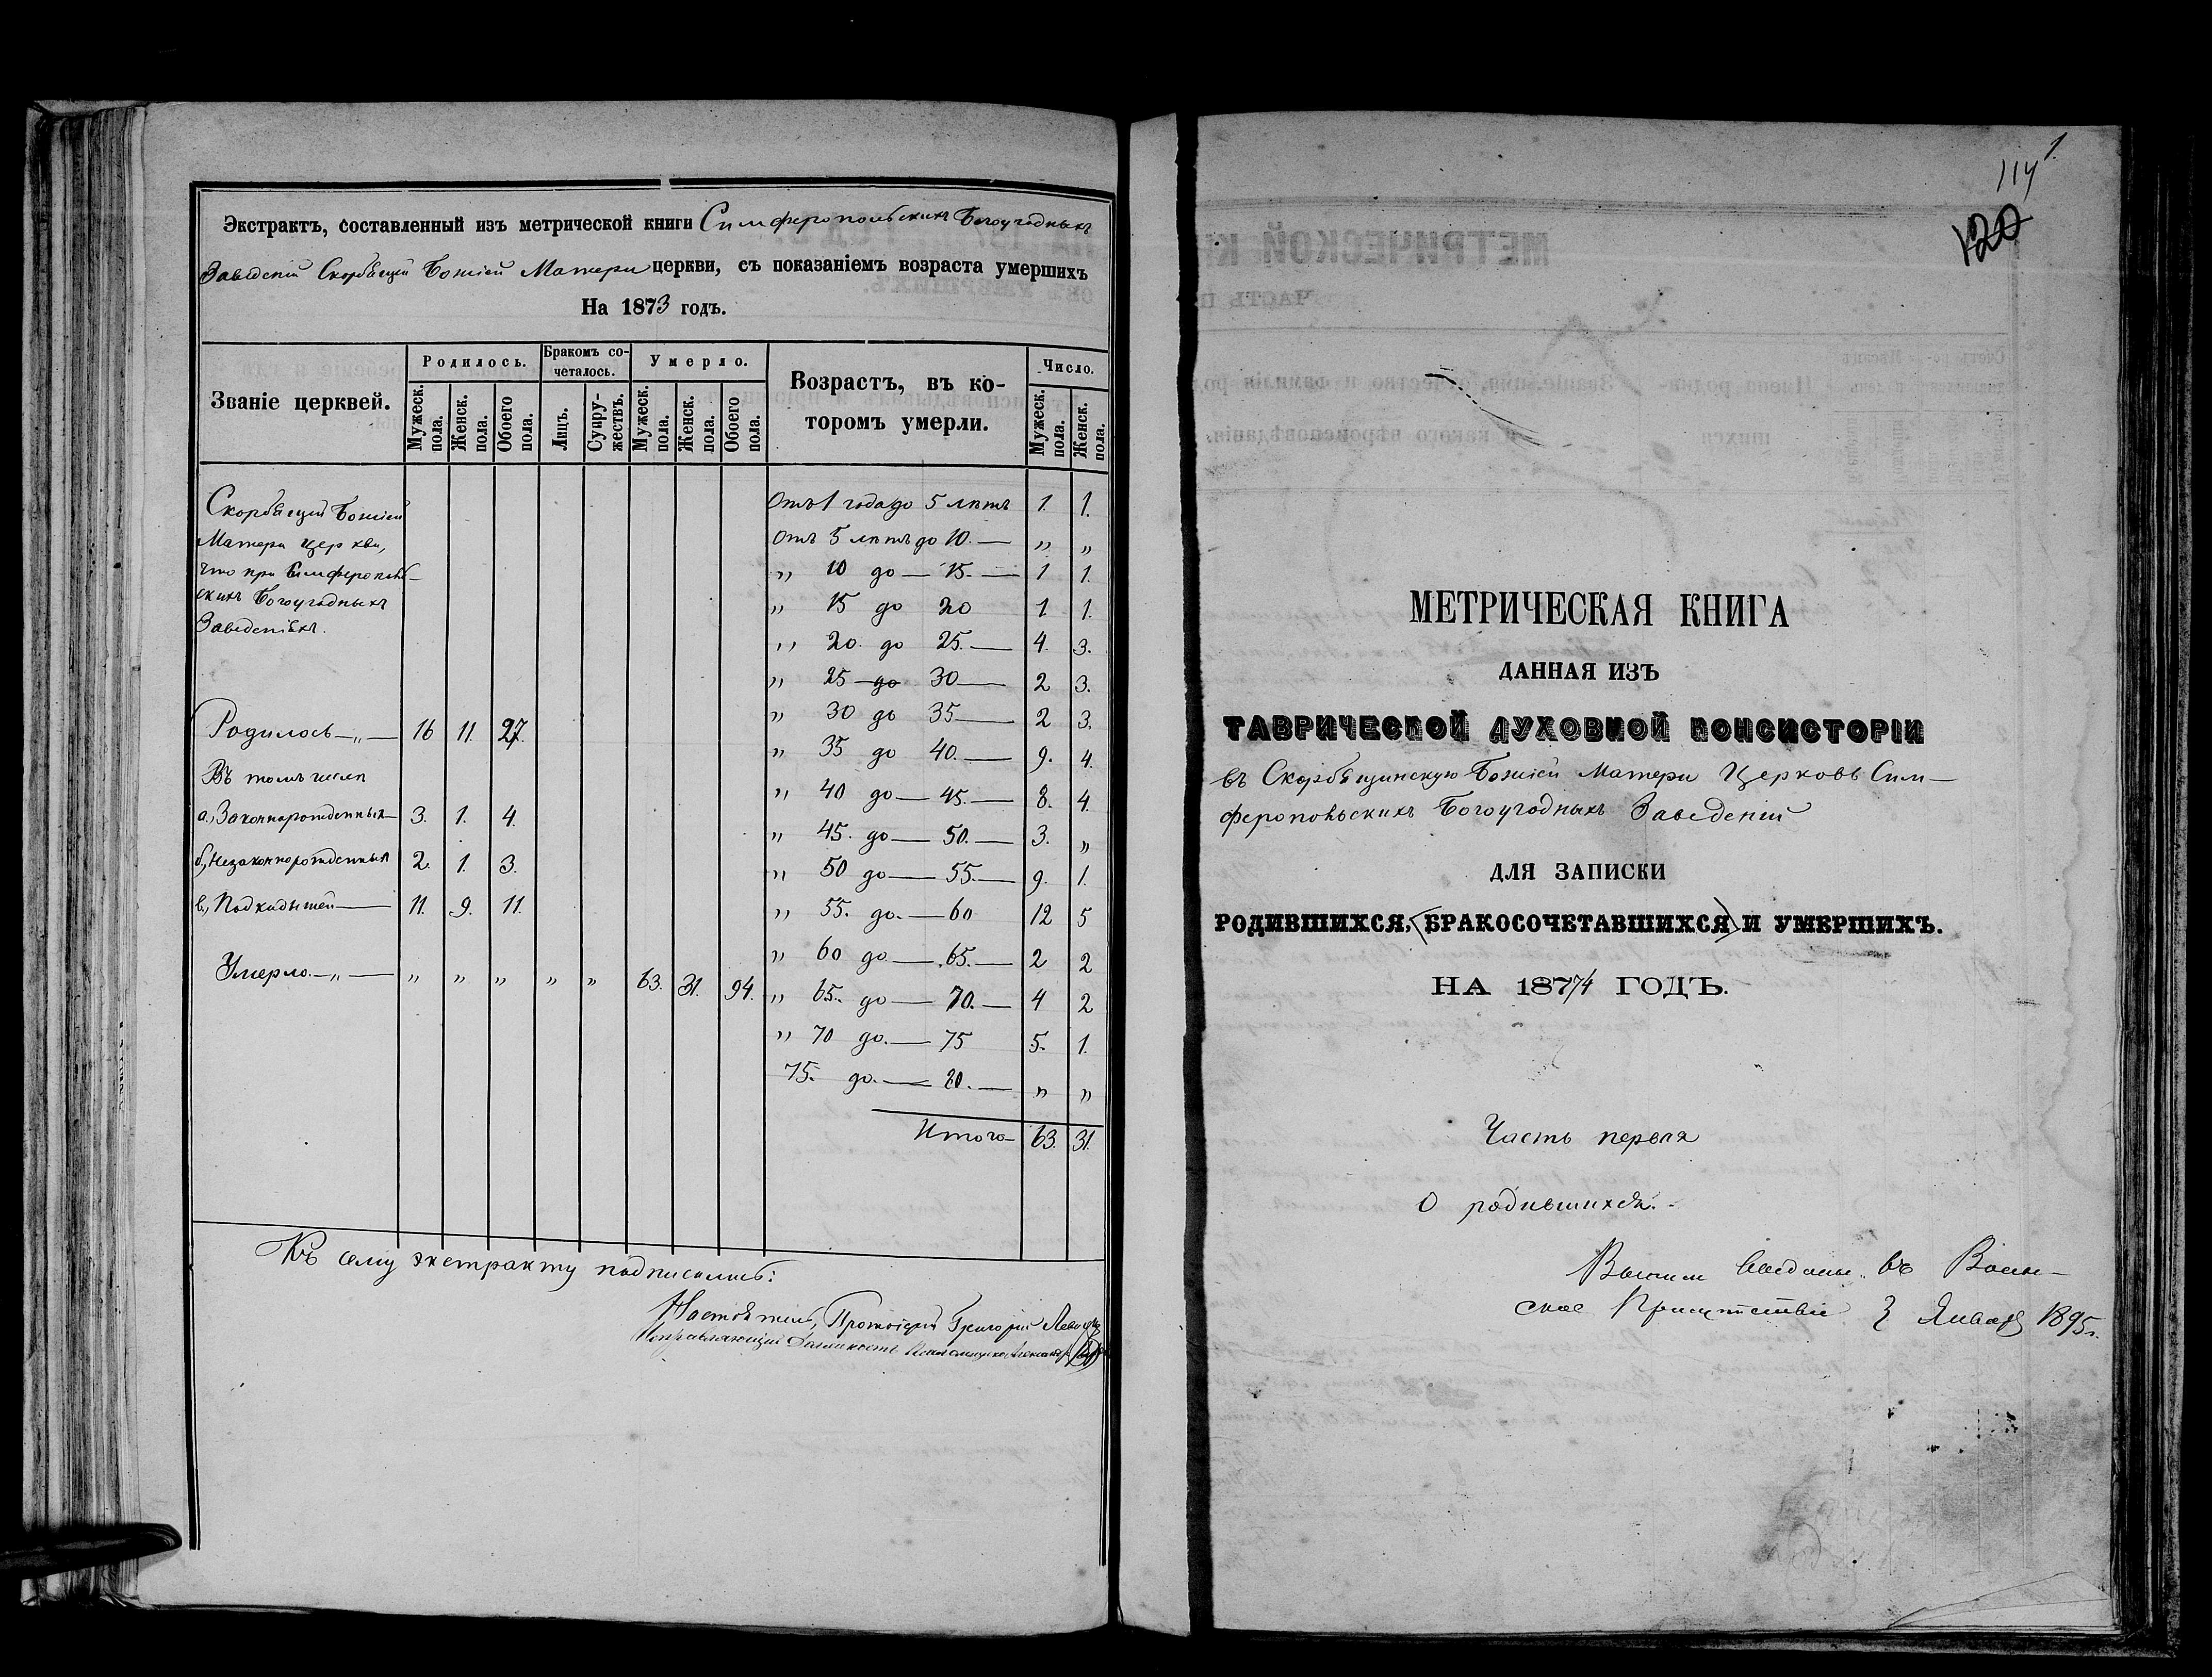 Экстрактъ, составленный изъ метрической книги Симферопольскихъ Богоугодныхъ
Заведеній Скорбящей Божіей Матери церкви, съ показаніемъ возраста умершихъ
На 1873 годъ.
Званіе церквей.
Родилось.
Мужеск. пола.
Женск. пола.
Обоего пола.
Бракомъ сочеталось.
Лицъ.
Супружествъ.
Умерло.
Мужеск. пола.
Женск. пола.
Обоего пола.
Возрастъ, въ ко-
торомъ умерли.
Число.
Мужеск. пола.
Женск. пола.
Скорбящей Божіей
Матери церкви,
что при Симферополь-
скихъ Богоугодныхъ
Заведеніяхъ.
Родилось —„— 16 11. 27.
Въ томъ числѣ
а., Законнорожденныхъ— 3. 1. 4.
б., Незаконнорожденныхъ 2. 1. 3.
в., Подкидышей — 11. 9. 11.
Умерло —„— „ „ „ „ „ 63. 31. 94.
Отъ 1 года до 5 лѣтъ 1. 1.
Отъ 5 лѣтъ до 10. — „ „
„ 10 до — 15. — 1 1.
„ 15 до 20 1 1.
„ 20. до 25. — 4. 3.
„ 25 — до 30 — 2 3.
„ 30 до 35 — 2 3.
„ 35 до 40. — 9. 4.
„ 40 до — 45. — 8. 4.
„ 45. до — 50. — 3. „
„ 50 до — 55. — 9. 1.
„ 55. до. — 60 12 5
„ 60 до — 65. — 2 2
„ 65. до — 70. — 4 2
„ 70 до. — 75 5. 1.
75. до. — 80. — „ „
Итого 63. 31.
Къ сему экстракту подписались:
Настоятель, Протоіерей Григорій
Исправляющій должность Псаломщика
1.
114
120
МЕТРИЧЕСКАЯ КНИГА
ДАННАЯ ИЗЪ
ТАВРИЧЕСКОЙ ДУХОВНОЙ КОНСИСТОРІИ
въ Скорбященскую Божіей Матери Церковь Сим-
феропольскихъ Богоугодныхъ Заведеній
ДЛЯ ЗАПИСКИ
РОДИВШИХСЯ, (БРАКОСОЧЕТАВШИХСЯ) И УМЕРШИХЪ.
НА 1874 ГОДЪ.
Часть первая
О родившихся.
въ Воин-
ское Присутствіе 3 Января 1895 г.